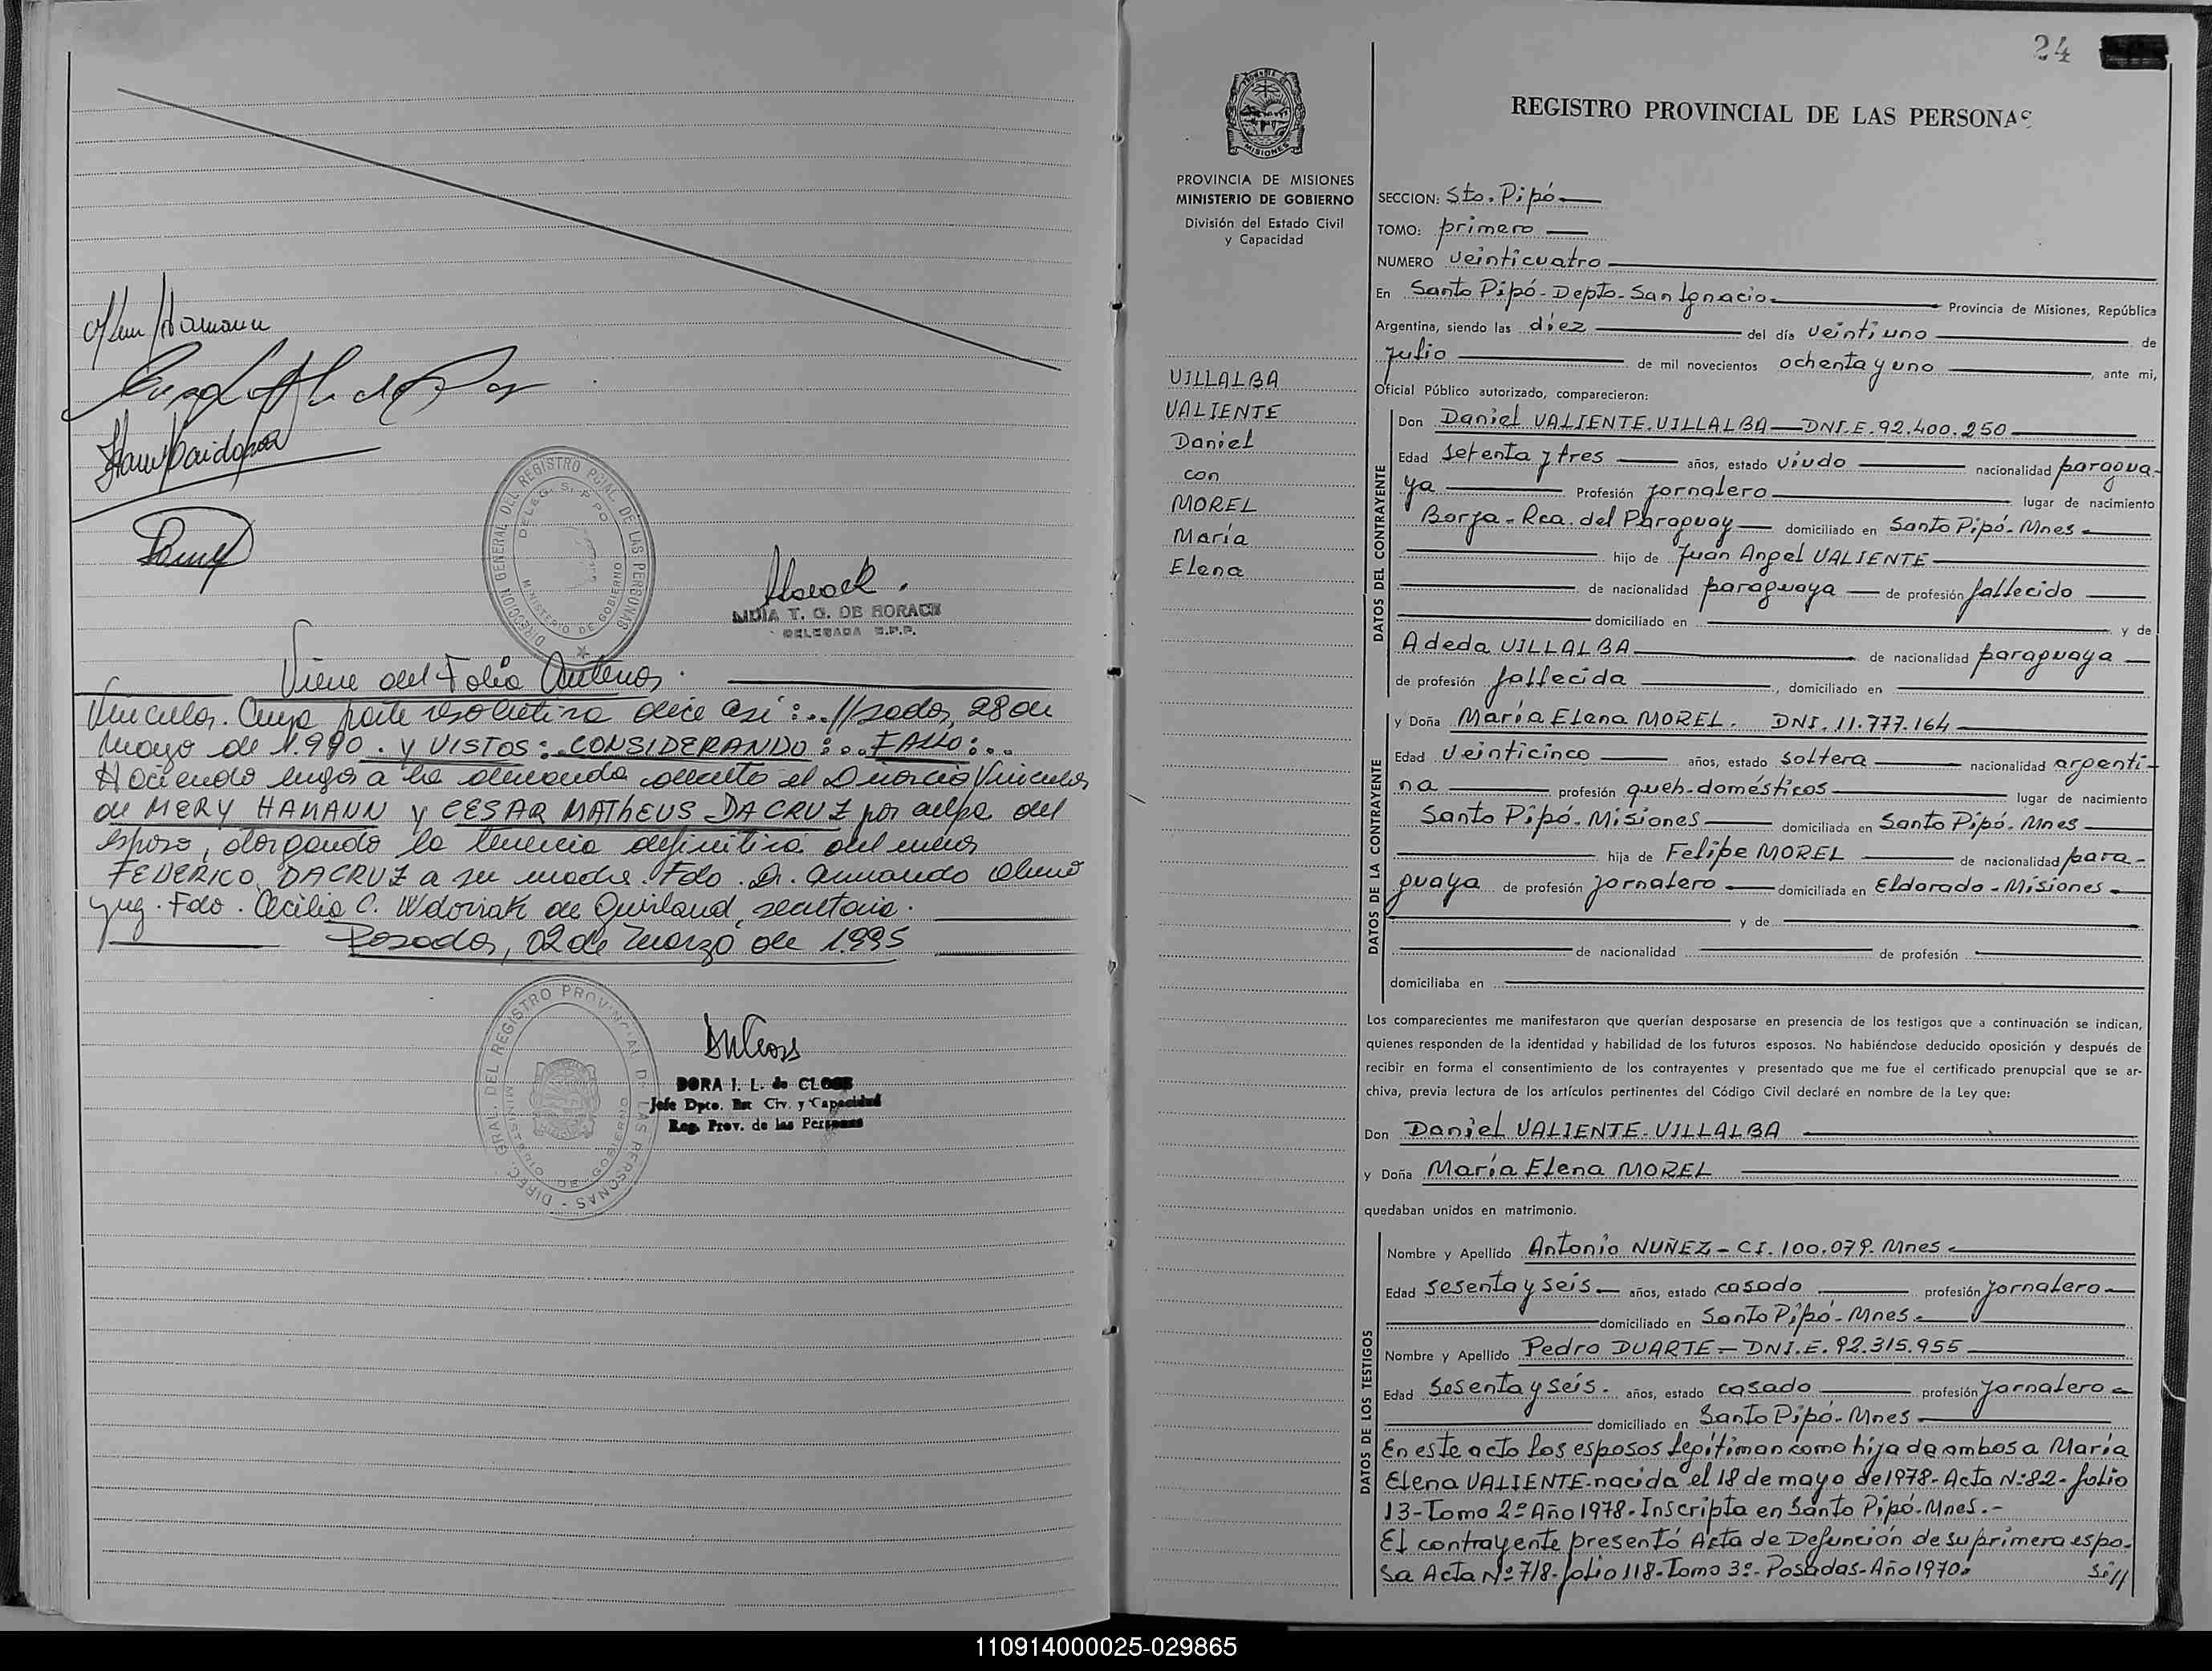 Hamann
DIRECCION GENERAL DEL REGISTRO PCIAL. DE LAS PERSONAS
MINISTERIO DE GOBIERNO
LIDIA T. G. DE HORACK
DELEGADA R.P.P.
Viene del Folio Anterior.
Vincular. Cuya parte resolutiva dice así:..//sadas, 28 de
mayo de 1.990. y VISTOS:.CONSIDERANDO:..FALLO:..
Haciendo lugar a la demanda decreto el Divorcio Vincular
de MERY HAMANN y CESAR MATHEUS DACRUZ por culpa del
esposo, otorgando la tenencia definitiva del menor
FEDERICO DACRUZ a su madre. Fdo. Dr. Armando
Juez. Fdo. Cecilia C. de secretaria.
Posadas, 02 de Marzo de 1.995
DIREC. GRAL. DEL REGISTRO PROVINCIAL DE LAS PERSONAS -
MINISTERIO DE GOBIERNO
DORA I. L. de CLOSS
Jefe Dpto. Est Civ. y Capacidad
Reg. Prov. de las Personas
24
PROVINCIA DE MISIONES
MINISTERIO DE GOBIERNO
División del Estado Civil
y Capacidad
VILLALBA
VALIENTE
Daniel
con
MOREL
María
Elena
REGISTRO PROVINCIAL DE LAS PERSONAS
SECCION: Sto. Pipó
TOMO: primero
NUMERO veinticuatro
En Santo Pipó - Depto. San Ignacio. Provincia de Misiones, República
Argentina, siendo las diez del día veintiuno de
julio de mil novecientos ochenta y uno, ante mi,
Oficial Público autorizado, comparecieron:
DATOS DEL CONTRAYENTE
Don Daniel VALIENTE.VILLALBA — DNI.E.92.400.250
Edad setenta y tres años, estado viudo nacionalidad paragua-
ya Profesión jornalero lugar de nacimiento
Borja - Rca. del Paraguay domiciliado en Santo Pipó - Mnes
hijo de Juan Angel VALIENTE
de nacionalidad paraguaya de profesión fallecido
domiciliado en y de
Adeda VILLALBA de nacionalidad paraguaya
de profesión fallecida, domiciliado en
DATOS DE LA CONTRAYENTE
y Doña María Elena MOREL. DNI.11.777.164
Edad veinticinco años, estado soltera nacionalidad argenti-
na profesión queh-domésticos lugar de nacimiento
Santo Pipó. Misiones domiciliada en Santo Pipó. Mnes
hija de Felipe MOREL de nacionalidad para-
guaya de profesión jornalero domiciliada en Eldorado - Misiones
y de
de nacionalidad de profesión
domiciliaba en
Los comparecientes me manifestaron que querían desposarse en presencia de los testigos que a continuación se indican,
quienes responden de la identidad y habilidad de los futuros esposos. No habiéndose deducido oposición y después de
recibir en forma el consentimiento de los contrayentes y presentado que me fue el certificado prenupcial que se ar-
chiva, previa lectura de los artículos pertinentes del Código Civil declaré en nombre de la Ley que:
Don Daniel VALIENTE.VILLALBA
y Doña María Elena MOREL
quedaban unidos en matrimonio.
DATOS DE LOS TESTIGOS
Nombre y Apellido Antonio NUÑEZ - CI.100.079. Mnes
Edad sesenta y seis años, estado casado profesión jornalero
domiciliado en Santo Pipó - Mnes
Nombre y Apellido Pedro DUARTE — DNI.E.92.315.955
Edad sesenta y seis. años, estado casado profesión jornalero
domiciliado en Santo Pipó - Mnes
En este acto los esposos legitiman como hija de ambos a María
Elena VALIENTE.nacida el 18 de mayo de 1978 - Acta Nº82 - folio
13 - Tomo 2º Año 1978 - Inscripta en Santo Pipó. Mnes.-
El contrayente presentó Acta de Defunción de su primera espo-
sa Acta Nº 718 - folio 118 - Tomo 3º - Posadas - Año 1970. Si//
110914000025-029865